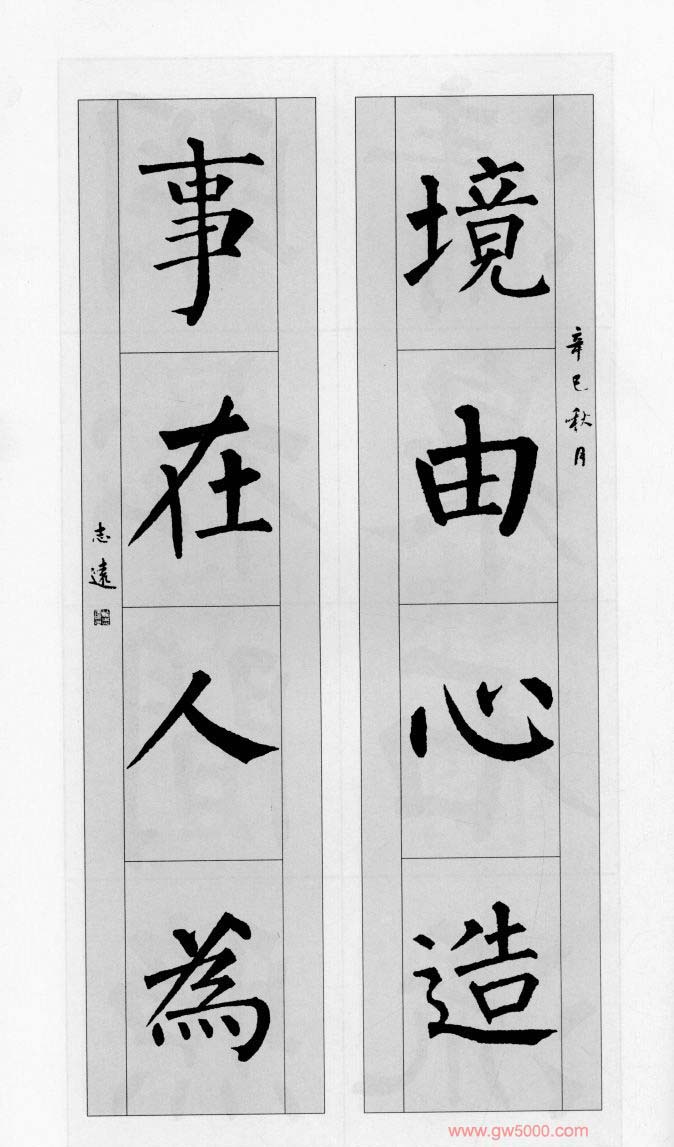 辛巳秋月
境由心造
事在人為
志遠
www.gw5000.com